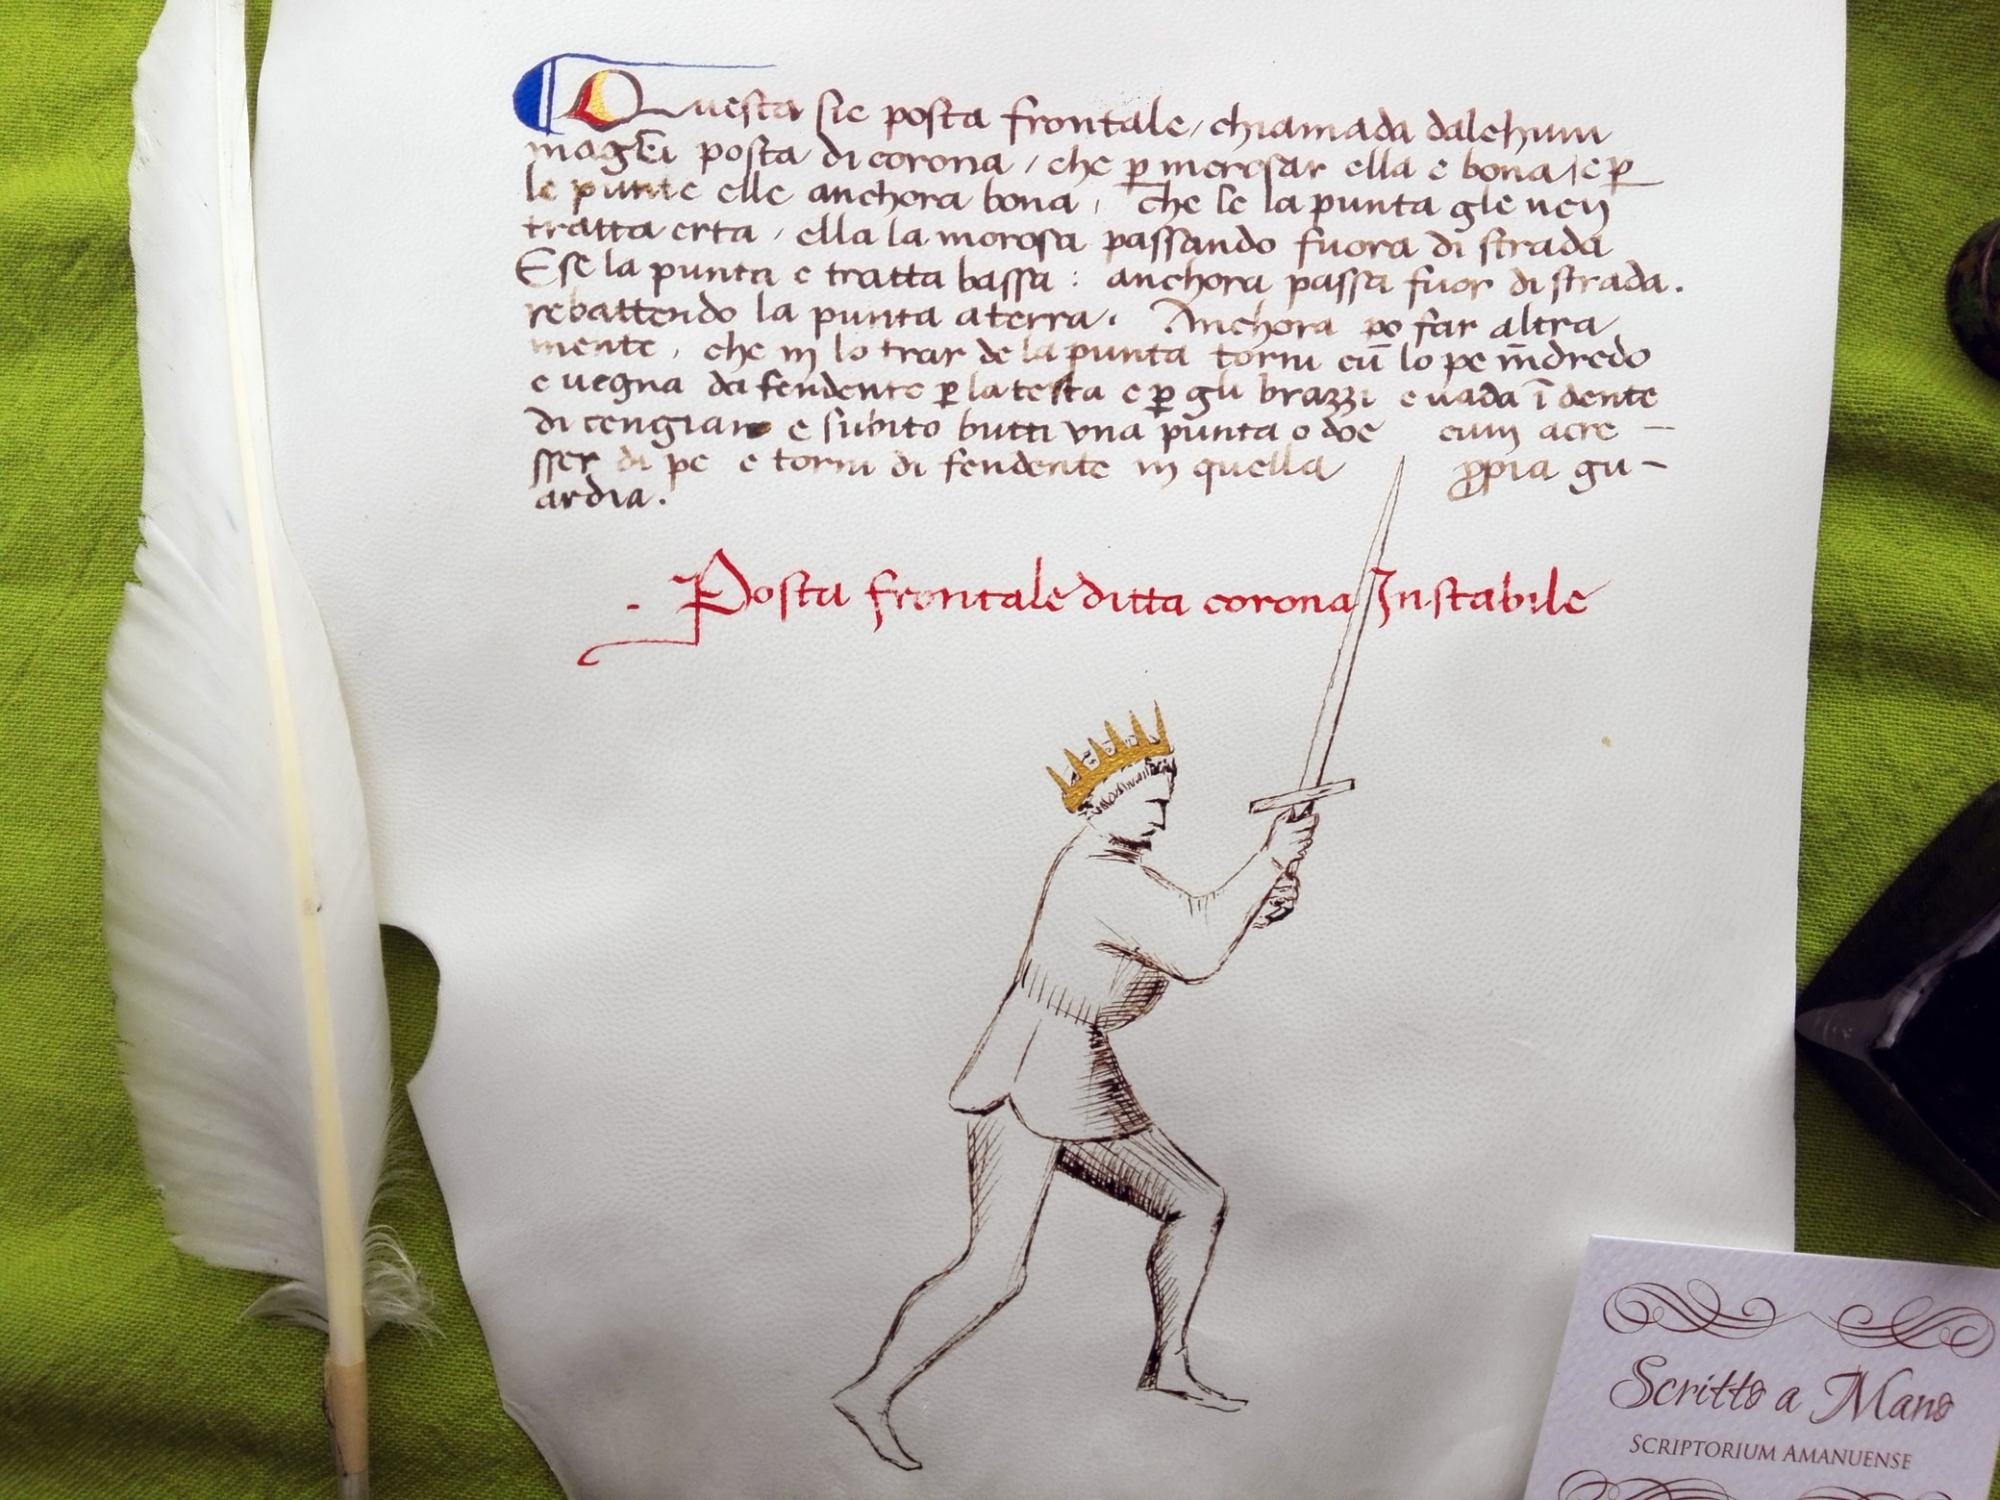 Questa sie posta frontale, chiamada dalchuni
magistri posta di corona, che p̱ incrosar ella e bona, e p̱
le punte elle anchora bona, che se la punta gle ven
tratta erta, ella la incrosa passando fuora di strada
E se la punta e tratta bassa: anchora passa fuor di strada.
rebattendo la punta a terra. Anchora po far altra
mente, che in lo trar de la punta torni cū lo pe indredo
e vegna da fendente p̱ la testa e p̱ gli brazzi e vada ī dente
di cengiaro e subito butti una punta o doe cum acre
sser di pe e torni di fendente in quella ꝓpia gu
ardia.
Posta frontale ditta corona Instabile
Scritto a Mano
Scriptorium Amanuense